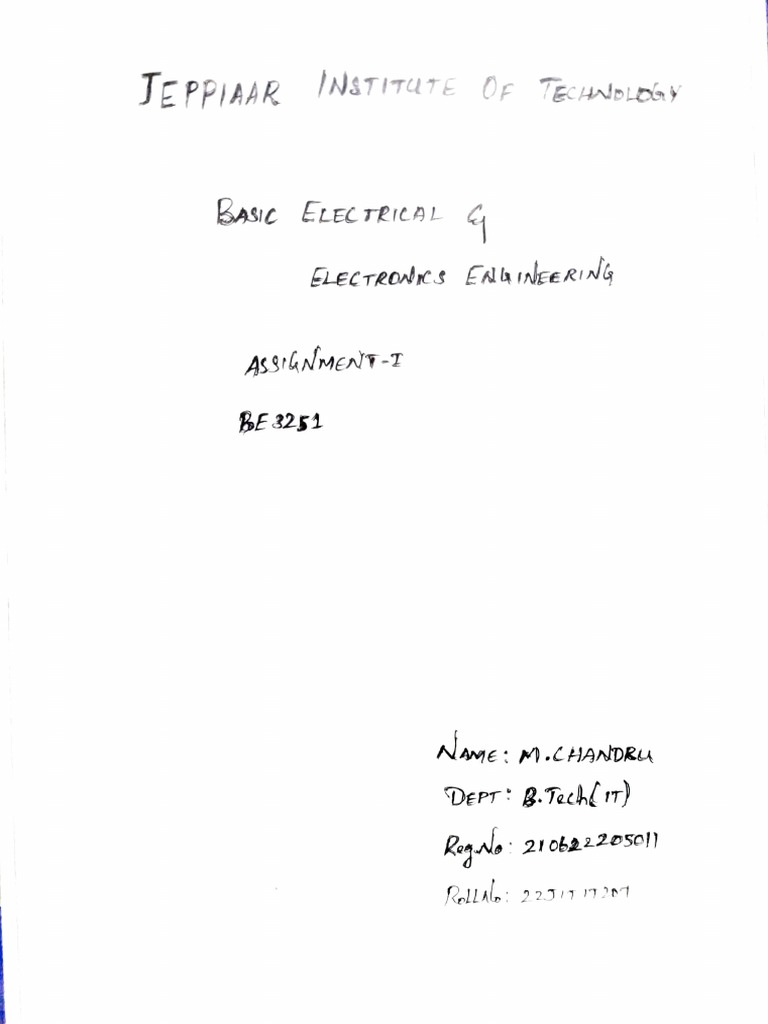 JEPPIAAR INSTITUTE OF TECHNOLOGY
BASIC ELECTRICAL &
ELECTRONICS ENGINEERING
ASSIGNMENT-I
BE3251
NAME: M.CHANDRU
DEPT: B.Tech(IT)
Reg.No: 210622205011
RollNo: